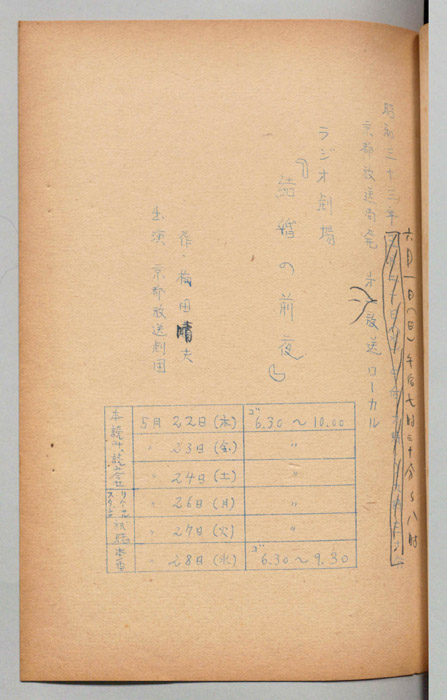 昭和三十三年
六月一日(日)午后七時三十分〜八時
京都放送局発 第一放送ローカル
ラジオ劇場
『結婚の前夜』
作・梅田晴夫
出演 京都放送劇団
本読み 5月 22日(木) ゴ6.30〜10.00
立合せ 〃 23日(金) 〃
〃 24日(土) 〃
〃 26日(月) 〃
〃 27日(火) 〃
本番 〃 28日(水) ゴ6.30〜9.30